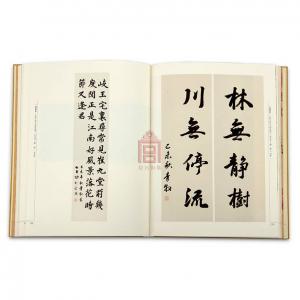 林無靜樹
川無停流
岐王宅裏尋常見崔九堂前幾
度聞正是江南好風景落花時
節又逢君